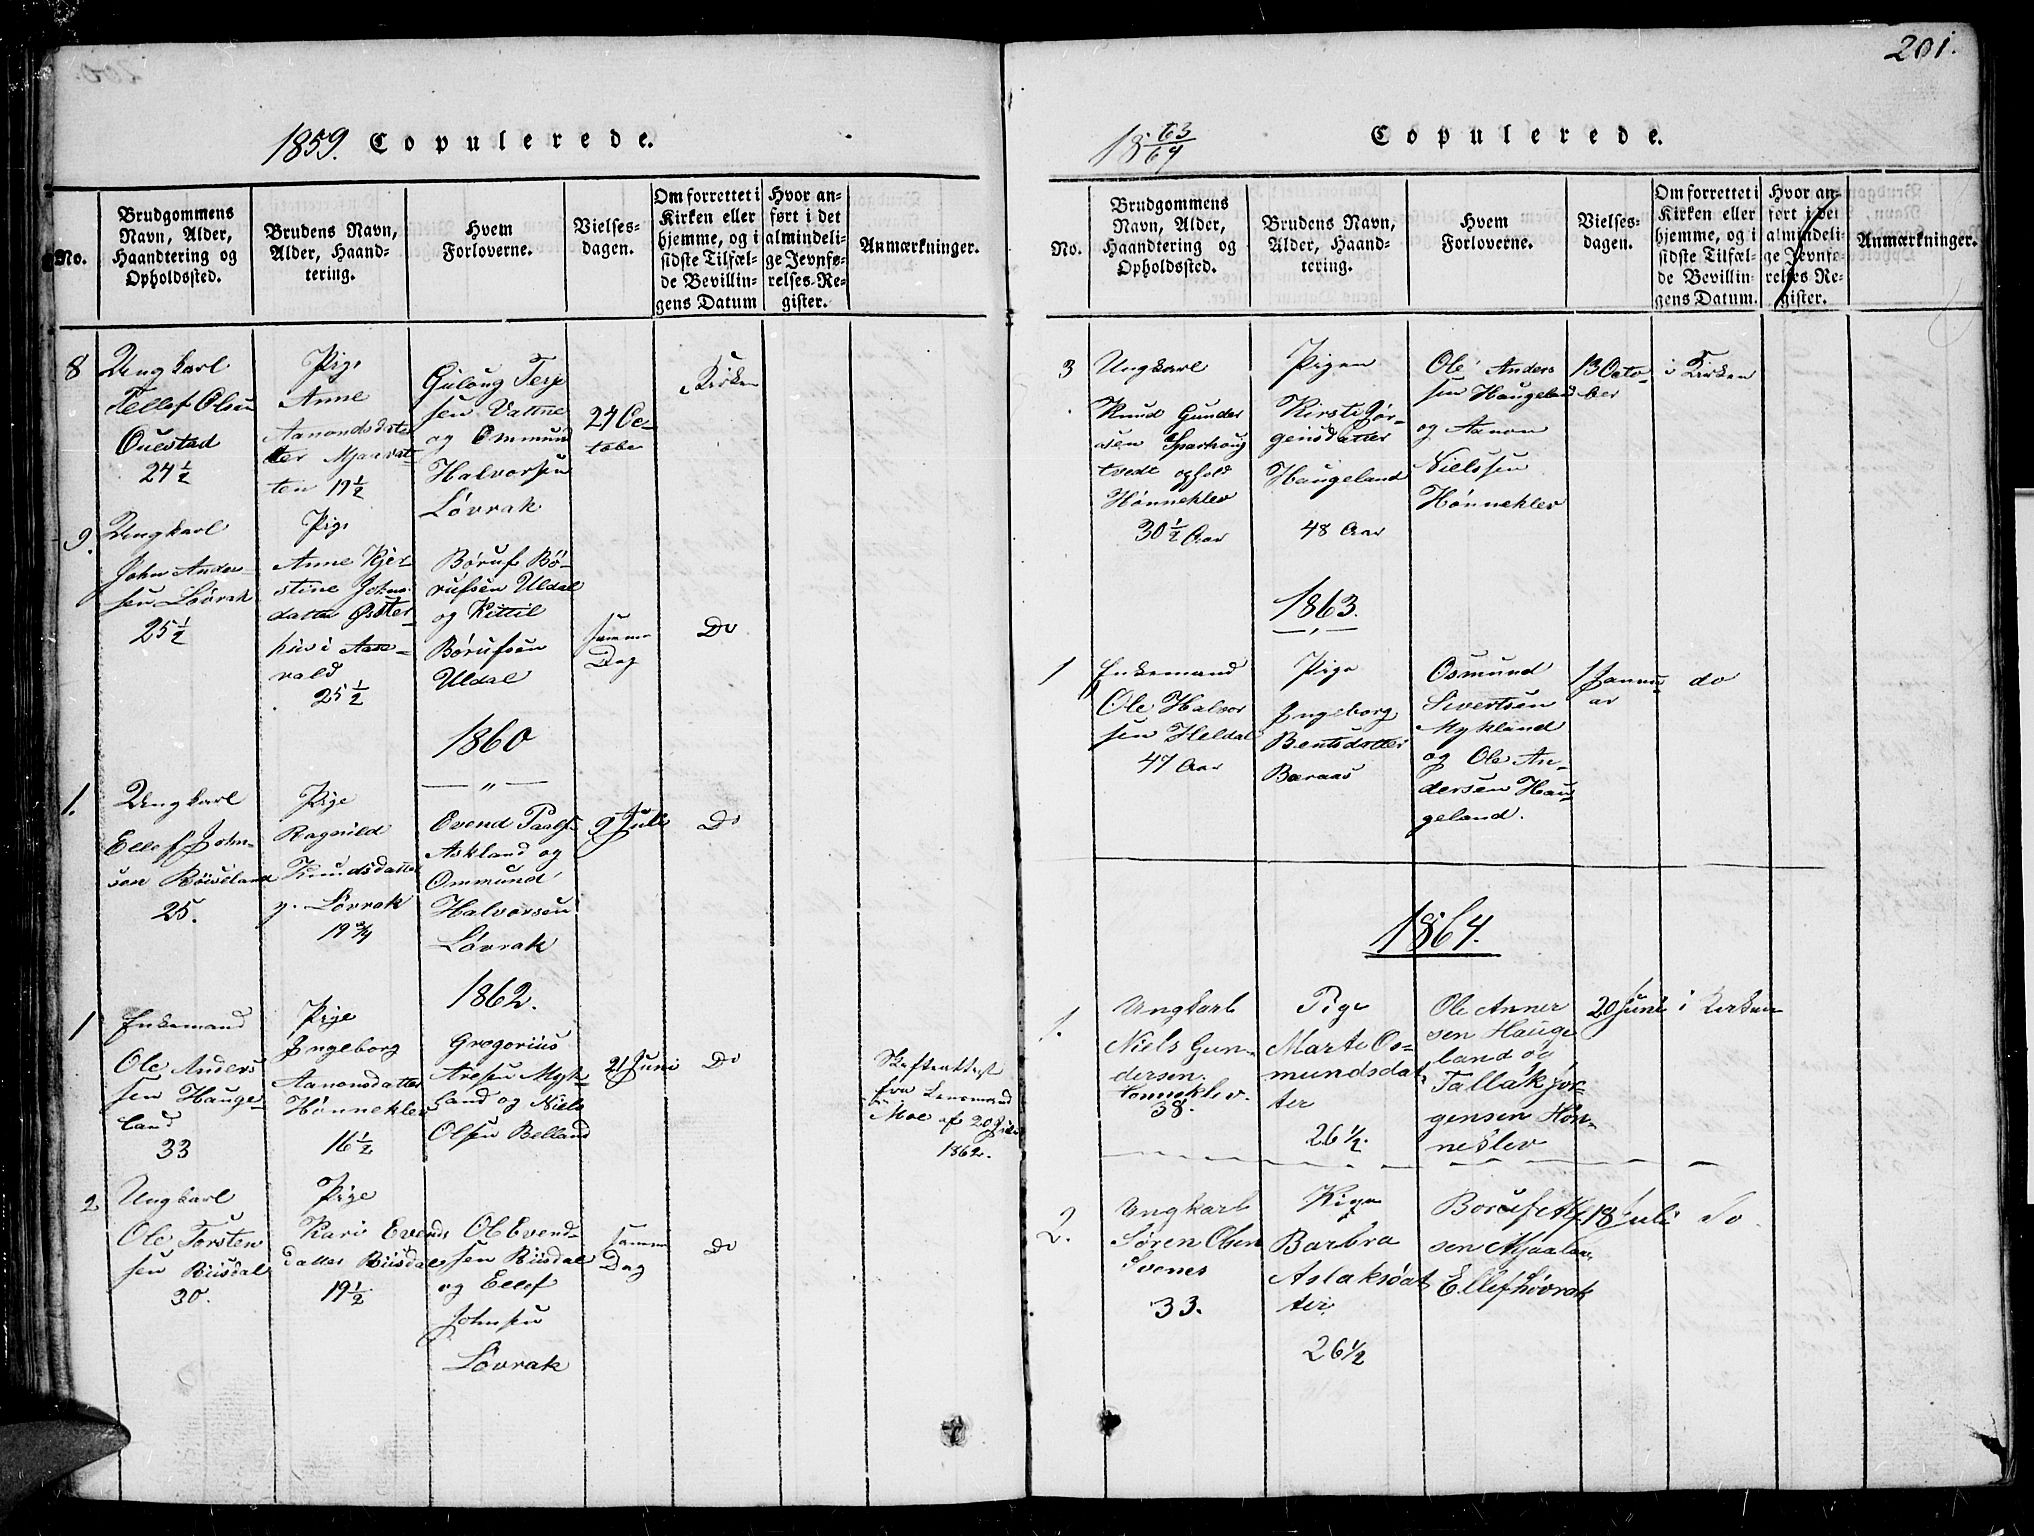 201.
1859. Copulerede.
No.
Brudgommens Navn, Alder, Haandtering og Opholdssted.
Brudens Navn, Alder, Haandtering.
Hvem Forloverne.
Vielsesdagen.
Om forrettet i Kirken eller hjemme, og i sidste Tilfælde Bevillingens Datum
Hvor anført i det almindelige Jevnførelses-Register.
Anmærkninger.
8
Ungkarl
Tellef Olsen
Ouestad
24½
Pige
Anne
Aanondsdotter
ten 19½
Guloug Terje
sen Vattne
og Ommund
Halvorsen
Løvrak
24 Oc-
tobe
Kirken
9.
Ungkarl
John Ander-
sen Løvrak
25½
Pige
Anne Kjer-
stine Johns-
datter Øster-
hus i
vald
25½
Børuf Bø-
rufsen Uldal
og Kittil
Børufsen
Uldal
samme
Dag
Do
1860
— " —
1.
Ungkarl
Ellef John-
sen Røiseland
25.
Pige
Ragnild
Knudsdatter
y. Løvrak
19¾
Ovend Paals-
Askland og
Ommund
Halvorsen
Løvrak
9 Juli
Do
1862.
1
Enkemand
Ole Anders
sen Hauge-
land
33
Pige
Ingeborg
Aanonsdatter
Hønneklev
16½
Gregorius
Aresen Myk-
land og Niels
Olsen Belland
21 Juni
Do
Skifteattest
fra Lensmand
Moe af 20
1862.
2
Ungkarl
Ole Torsten
sen Risdal
30.
Pige
Kari Evends
datter Risdal
19½
Ole Evend-
sen Risdal
og Ellef
Johnsen
Løvrak
samme
Dag
Do
18 63/64 Copulerede.
No.
Brudgommens Navn, Alder, Haandtering og Opholdssted.
Brudens Navn, Alder, Haandtering.
Hvem Forloverne.
Vielsesdagen.
Om forrettet i Kirken eller hjemme, og i sidste Tilfælde Bevillingens Datum.
Hvor anført i det almindelige Jevnførelses Register.
Anmærkninger.
3
Ungkarl
Knud Gunder
tvedt ophold
Hønneklev
30½ Aar
Pigen
Kirsti Jør-
gensdatter
Haugeland
48 Aar
Ole Anders
sen Haugeland
og Aanon
Nielssen
Hønneklev
13 Octo-
ber
i Kirken
1863.
1
Enkemand
Ole Halvor
sen Heldal
47 Aar
Pige
Ingeborg
Bentsdatter
Baraas
Osmund
Sivertsen
Mykland
og Ole An-
dersen Hau
geland.
1 Janu-
ar
do
1864.
1.
Ungkarl
Niels Gun-
dersen
Hønneklev.
38.
Pige
Marte Os-
mundsdat-
ter
26½.
Ole Anner
sen Hauge
land og
Tallak Jør-
gensen Høn-
neslev
20 Juni
i Kirken
2.
Ungkarl
Søren Olsen
Svenes
33.
Pige
Barbra
Aslaksdat
ter
26½
Boruf
sen
Ellef Løvrak
18 Juli
Do